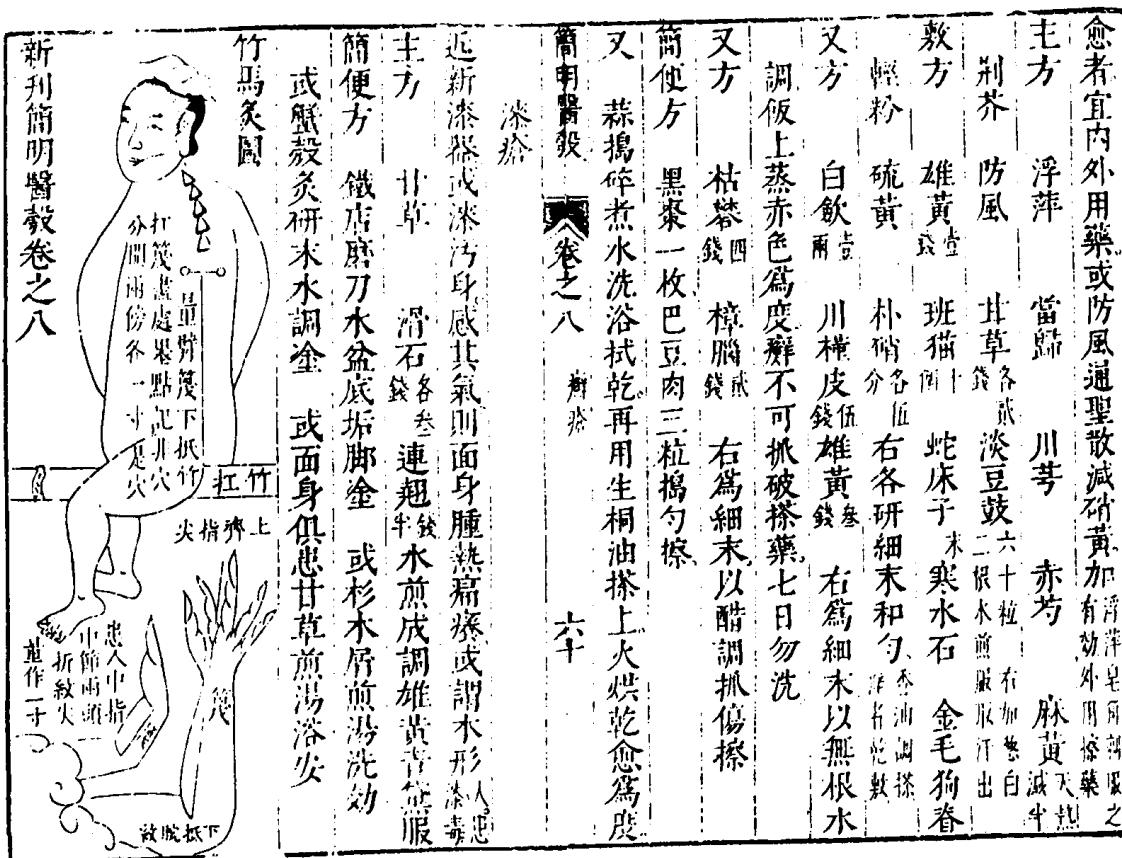 愈者宜内外用藥或防風通聖散減硝黃加浮萍皂角辨服之有効外用擦藥
主方 浮萍 當歸 川芎 赤芍 麻黃天熱減半
荆芥 防風 甘草各貳錢 淡豆鼓六十粒 右加葱白二根水煎服取汗出
敷方 雄黃壹錢 班猫十個 蛇床子末 寒水石 金毛狗脊
輕粉 硫黃 朴硝各伍分 右各研細末和勻香油調搽 者乾敷
又方 白歛壹兩 川槿皮伍錢 雄黃叁錢 右爲細末以無根水
調飯上蒸赤色爲度癬不可抓破搽藥七日勿洗
又方 枯礬四錢 樟腦貳錢 右爲細末以醋調抓傷擦
簡便方 黑棗一枚巴豆肉三粒搗勻擦
又 蒜搗碎煮水洗浴拭乾再用生桐油搽上火烘乾愈爲度
簡明醫彀 卷之八 癬瘡 六十
漆瘡
近新漆器或漆汚身感其氣則面身腫熱痛癢或謂木形人患漆毒
主方 甘草 滑石各叁錢 連翹錢半 水煎成調雄黃青黛服
簡便方 鐵店磨刀水盆底垢脚塗 或杉木屑煎湯洗効
或蟹殼炙研末水調塗 或面身俱患甘草煎湯浴安
竹馬灸圖
量臂篾下抵竹
扛篾盡處墨點記非穴
分開兩傍各一寸是穴
竹扛
上齊指尖
篾
患人中指
中節兩頭
折紋尖
量作一寸
下抵腕紋
新刋簡明醫彀卷之八